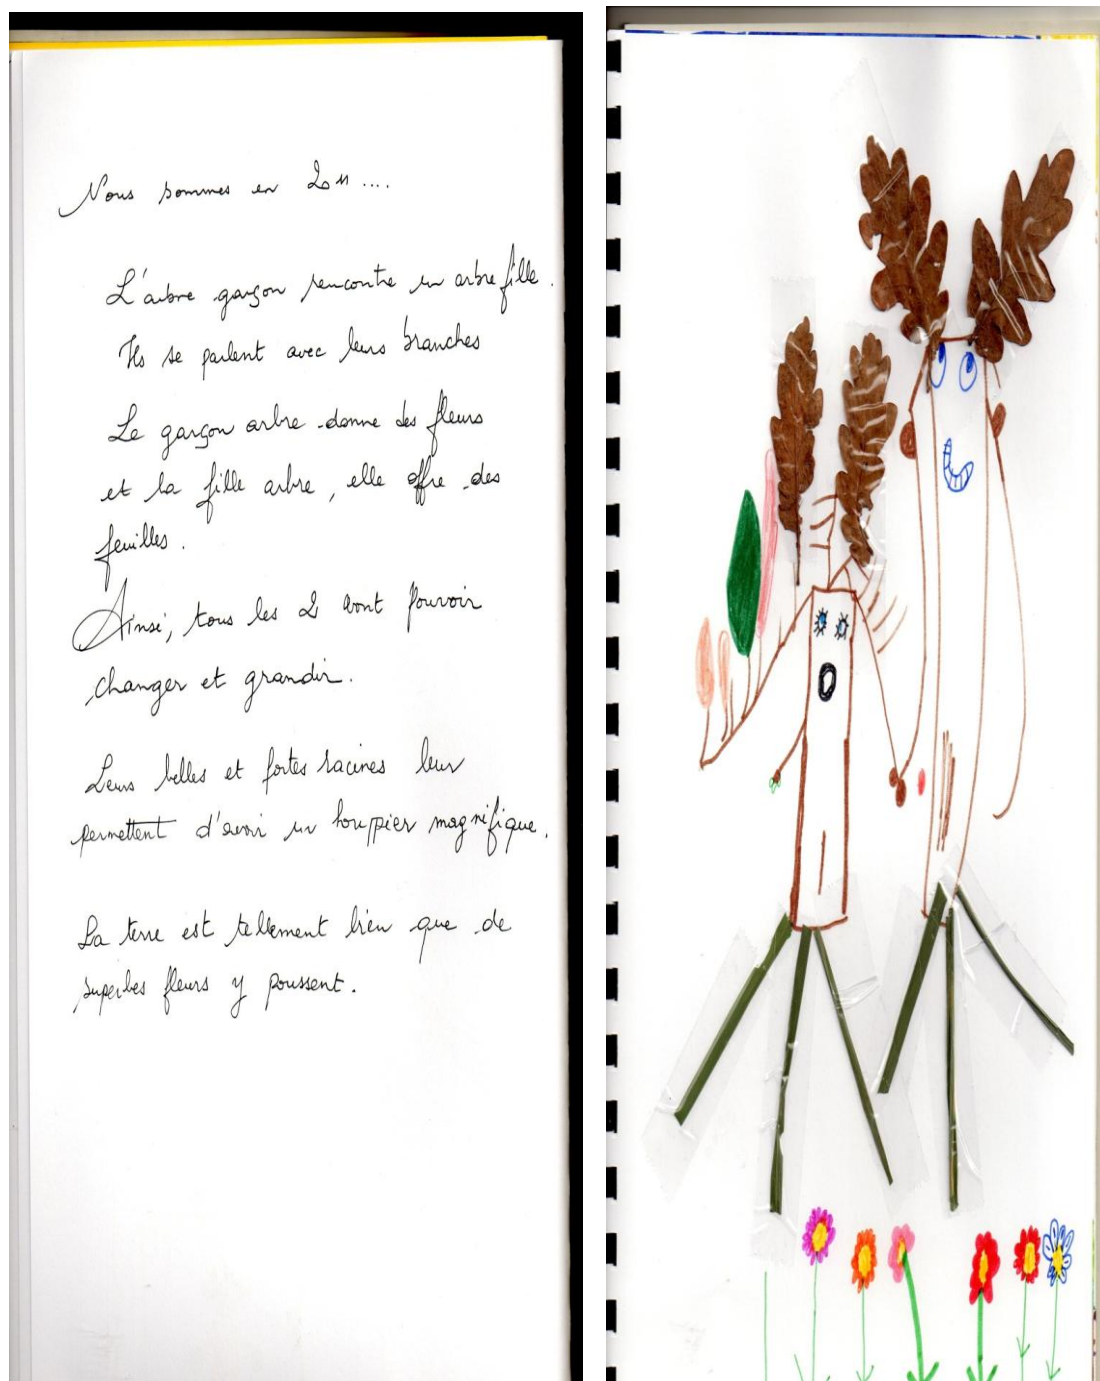 Nous sommes en 2011 ....
L'arbre garçon rencontre un arbre fille.
Ils se parlent avec leurs branches
Le garçon arbre donne des fleurs
et la fille arbre, elle offre des
feuilles.
Ainsi, tous les 2 vont pouvoir
changer et grandir.
Leurs belles et fortes racines leur
permettent d'avoir un houppier magnifique.
La terre est tellement bien que de
superbes fleurs y poussent.